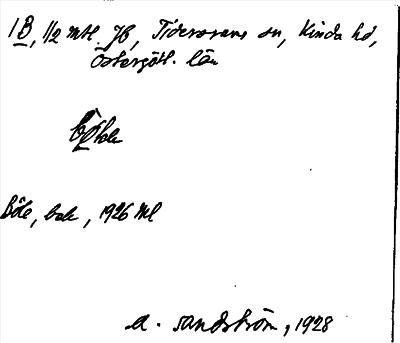 1 B, 1/2 mtl. Jb, Tidersrums sn, Kinda hd,
Östergötl. län
Böle, bak, 1926 Ml
A. Sandström, 1928